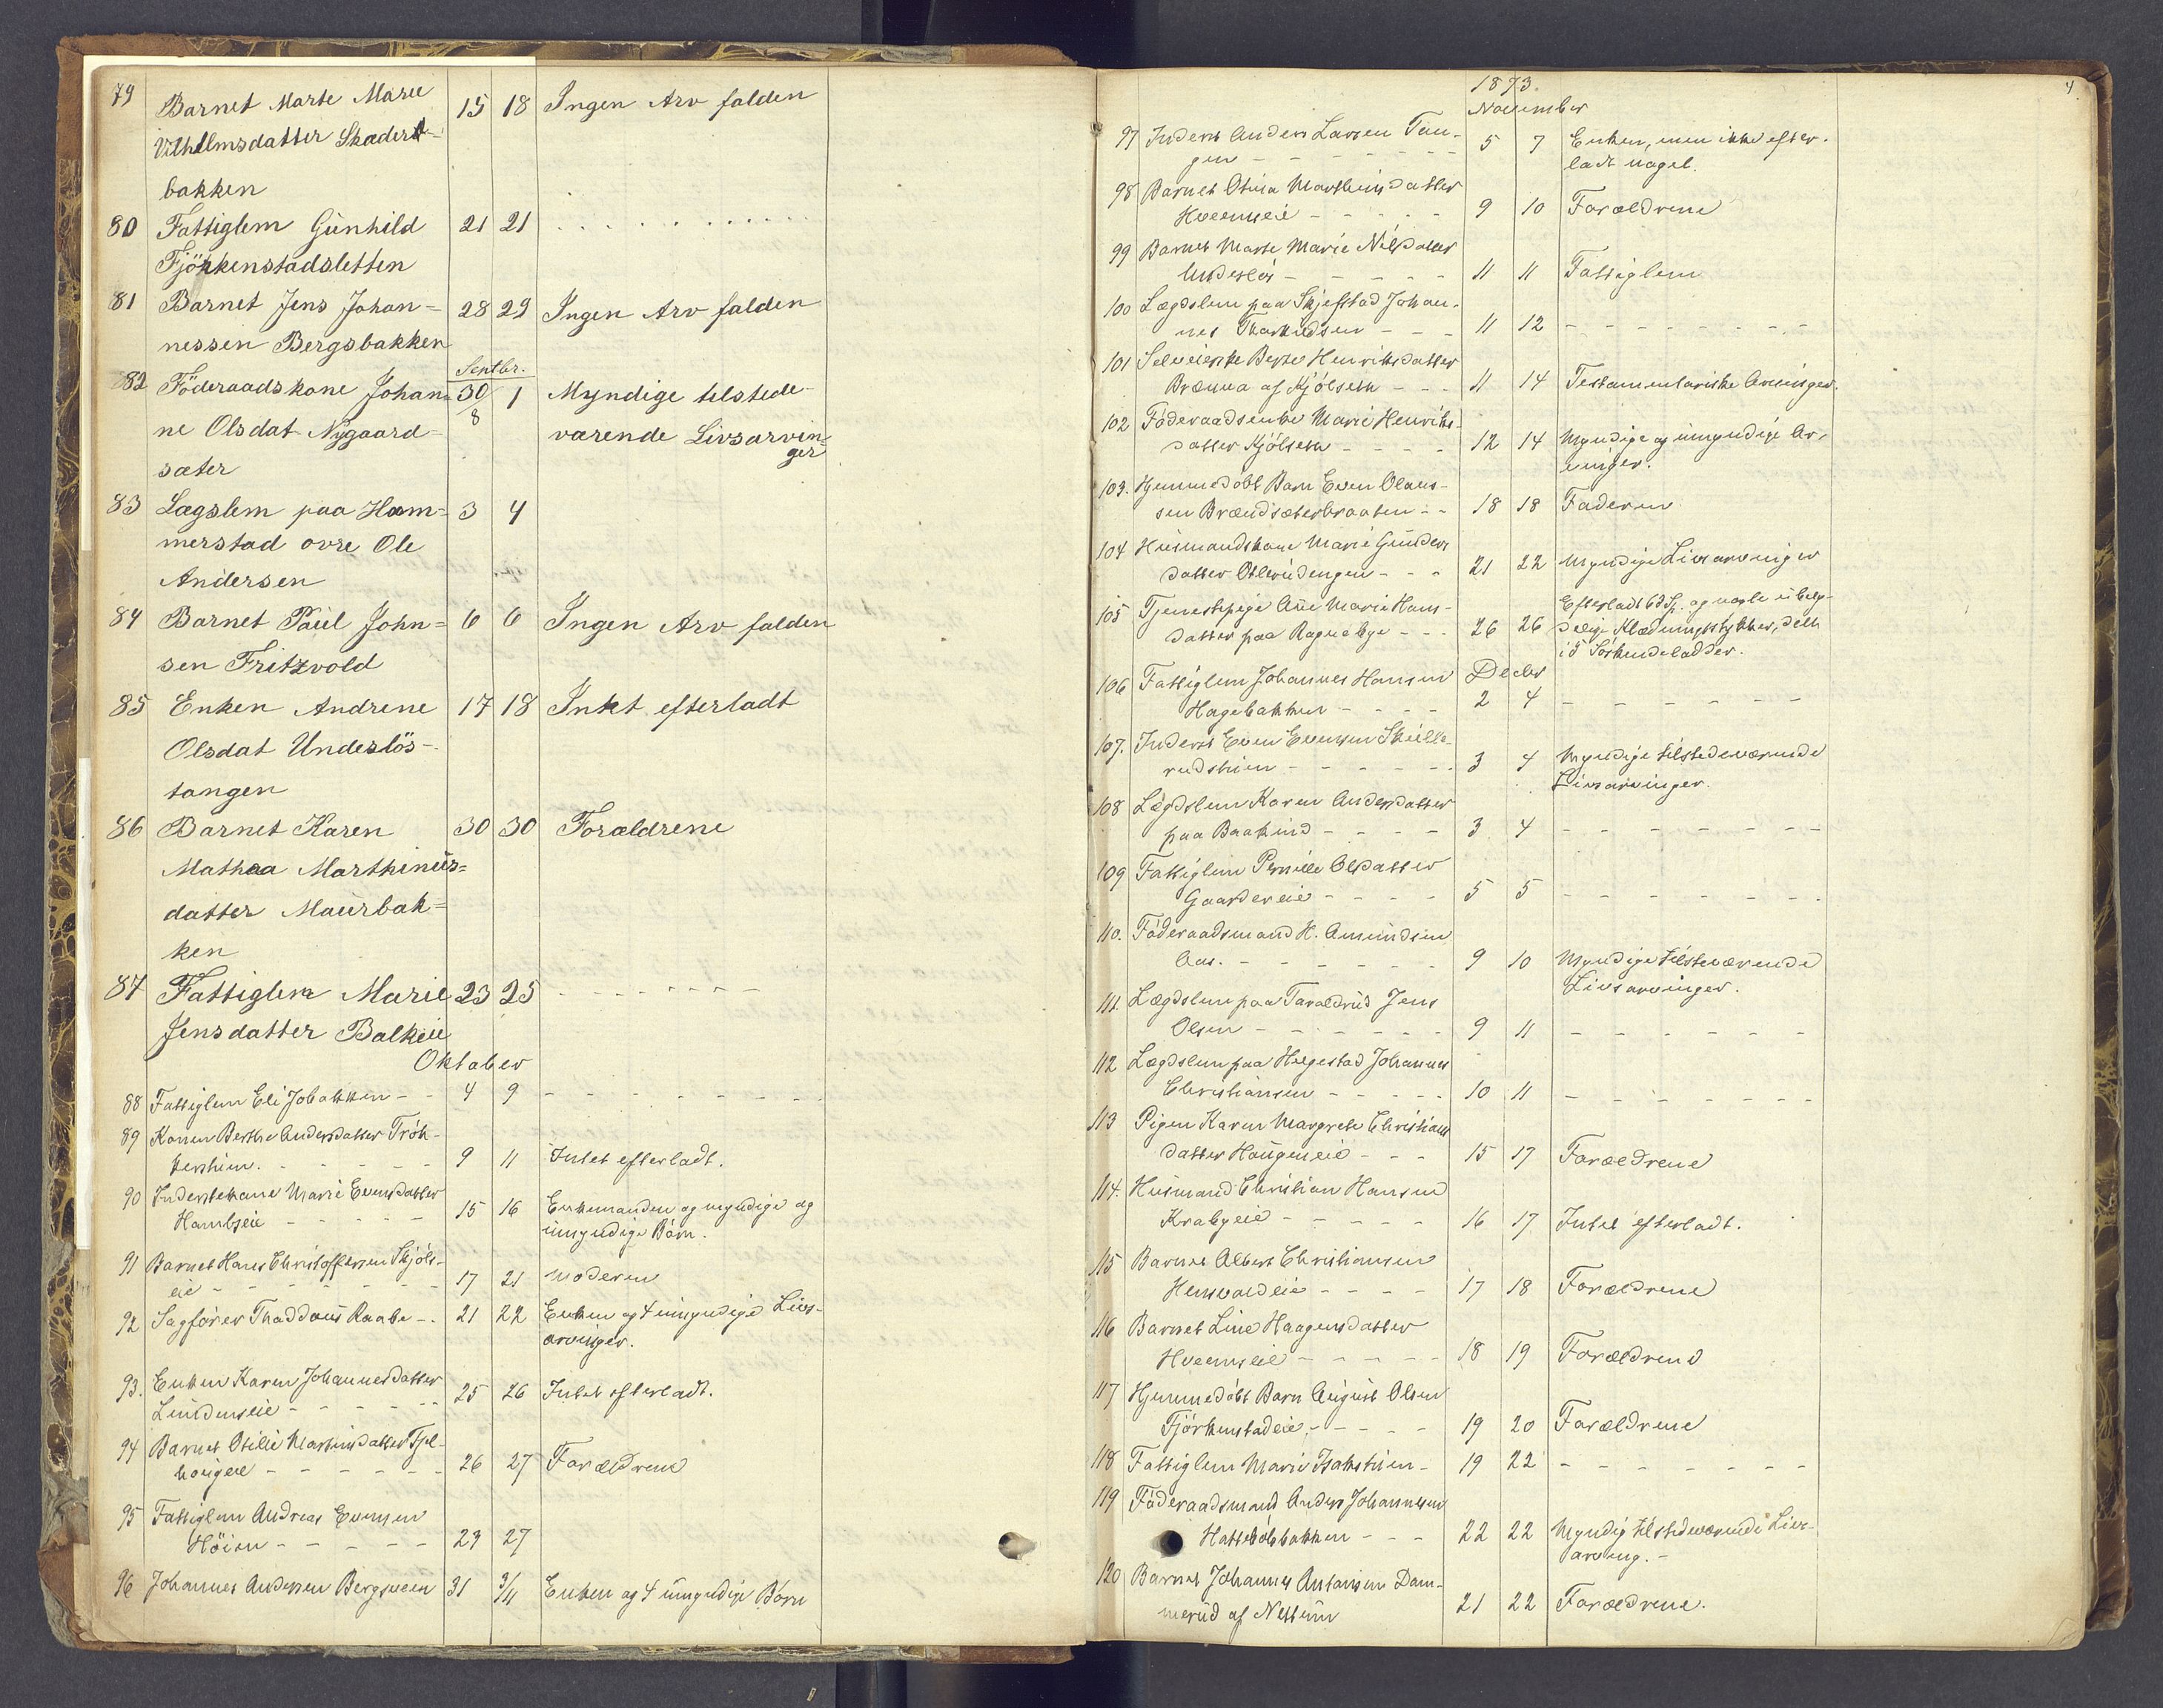 79 Barnet Marte Marie 15 18 Ingen Arv falden
Vilhelmsdatter Skaderud-
bakken
80 Fattiglem Gunhild 21 21 . . . . . . . . . . . .
Fjörkenstadsletten
81 Barnet Jens Johan= 28 29 Ingen Arv falden
nessen Bergsbakken
Septbr.
82 Föderaadskone Johan= 30/8 1 Myndige tilstede-
ne Olsdat Nygaard- værende Livsarvin=
sæter ger
83 Lægslem paa Ham= 3 4
merstad övre Ole
Andersen
84 Barnet Paul John= 6 6 Ingen Arv falden
sen Fritzvold
85 Enken Andrene 17 18 Intet efterladt
Olsdat Undeslös-
tangen
86 Barnet Karen 30 30 Forældrene
Mathea Marthinus=
datter Maurbak=
ken
87 Fattiglem Marie 23 25 - - - - - - - -
Jensdatter Balkeie
Oktober
88 Fattiglem Eli Jobakken - - 4 9 - - - - - - - -
89 Konen Berthe Andersdatter Trök-
kerstuen. - - - - - 9 11 Intet efterladt.
90 Inderstekone Marie Evensdatter
- - - - - 15 16 Enkemanden og myndige og
umyndige Börn.
91 Barnet Hans Christoffersen Skjöls-
eie - - - - - - - 17 21 Moderen
92 Sagförer Thaddæus Raabe - . 21 22 Enken og 4 umyndige Livs-
arvinger.
93. Enken Karen Johannesdatter 25 26 Intet efterladt.
Lundenseie - - - - - -
94 Barnet Otilie Martinsdatter Fjel-
haugeie - - - - - - 26 27 Forældrene
95 Fattiglem Andreas Evensen
Höien - - - - - 23 27
96 Johannes Andersen Bergsveen 31 3/11 Enken og 4 umyndige Börn
4.
1873.
November
97 Inderst Anders Larsen Tan-
gen - - - - - - - 5 7 Enken, men ikke efter-
ladt noget.
98 Barnet Otina Marthinsdatter
Hveemseie - - - - - 9 10 Forældrene
99 Barnet Marte Marie Nilsdatter
Undeslös - - - - - 11 11 Fattiglem
100 Lægdslem paa Skjefstad Johan-
nes Thorkildsen - - - 11 12 - - - - - - - -
101 Selveierske Berte Henriksdatter
Brænna af Kjölseth - - - 11 14 Testamentariske Arvinger.
102 Föderaadsenke Marie Henriks-
datter Kjölseth - - - - 12 14 Myndige og umyndige Ar-
vinger.
103. Hjemmedöbt Barn Even Olaus-
sen Brændsæterbraaten - - 18 18 Faderen
104 Husmandskone Marie Gunders
datter Otterudengen - - - 21 22 Myndige Livsarvinger
105 Tjenestepige Ane Marie Hans-
datter paa Ragnebye - - - 26 26 Efterladt 6 Sp. og nogle ubety-
delige Klædningsstykker, delt
i 3 Söskendeladder.
Decbr
106 Fattiglem Johannes Hansen
Hagebakken - - - - 2 4 - - - - - -
107. Inderst Even Evensen Skulle-
rudstuen - - - - - - 3 4 Myndige tilstedeværende
Livsarvinger.
108 Lægdslem Karen Andersdatter
paa Baakind - - - - 3 4 - - - - - - - -
109 Fattiglem Pernille Olsdatter
Gaardereie - - - - 5 5 - - - - - - - -
110. Föderaadsmand H. Amundsen
Aas. - - - - - - 9 10 Myndige tilsteværende
Livsarvinger.
111. Lægdslem paa Taraldrud Jens
Olsen - - - - - - 9 11 - - - - - -
112 Lægdslem paa Helgestad Johannes
Christiansen - - - - - 10 11 - - - - - - -
113 Pigen Karen Margrete Christians
datter Haugeneie - - - 15 17 Forældrene
114. Husmand Christian Hansen
Krabyeie - - - - - 16 17 Intet efterladt.
115 Barnet Albert Christiansen
Hensvoldeie - - - - 17 18 Forældrene
116 Barnet Line Haagensdatter
Hveemseie - - - - - 18 19 Forældrene
117 Hjemmedöbt Barn August Olsen
Fjörkenstadeie - - - - 19 20 Forældrene
118 Fattiglem Marie Isakstuen - 19 22 - - - - - - -
119 Föderaadsmand Anders Johannesen
Hattebölbakken - - - 22 22 Myndig tilstedeværende Livs-
arving. -
120 Barnet Johannes Antonsen Dam-
merud af Nettum 21 22 Forældrene.